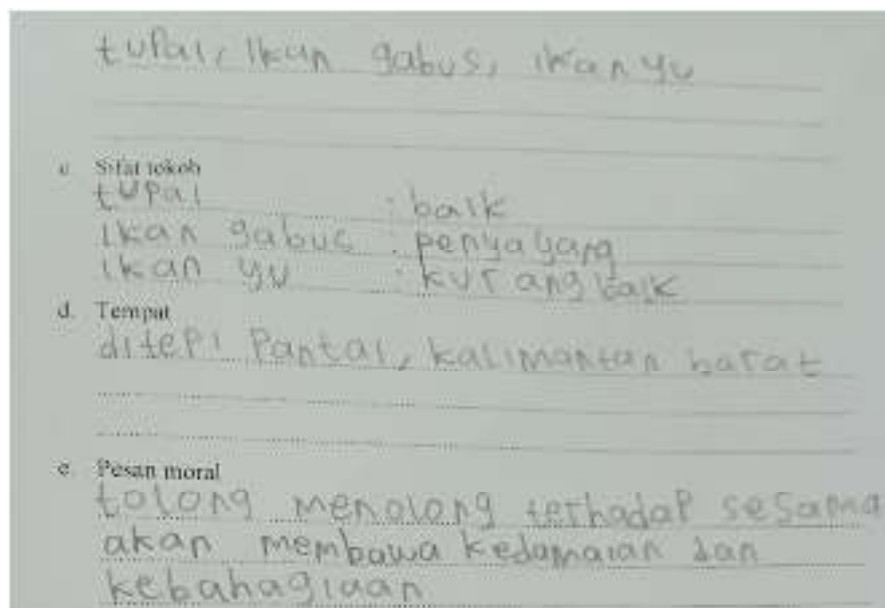 tupai, ikan gabus, ikan yu
c. Sifat tokoh
tupai : baik
ikan gabus : penyayang
ikan yu : kurang baik
d. Tempat
ditepi Pantai, kalimantan barat
e. Pesan moral
tolong menolong terhadap sesama
akan membawa kedamaian dan
kebahagiaan